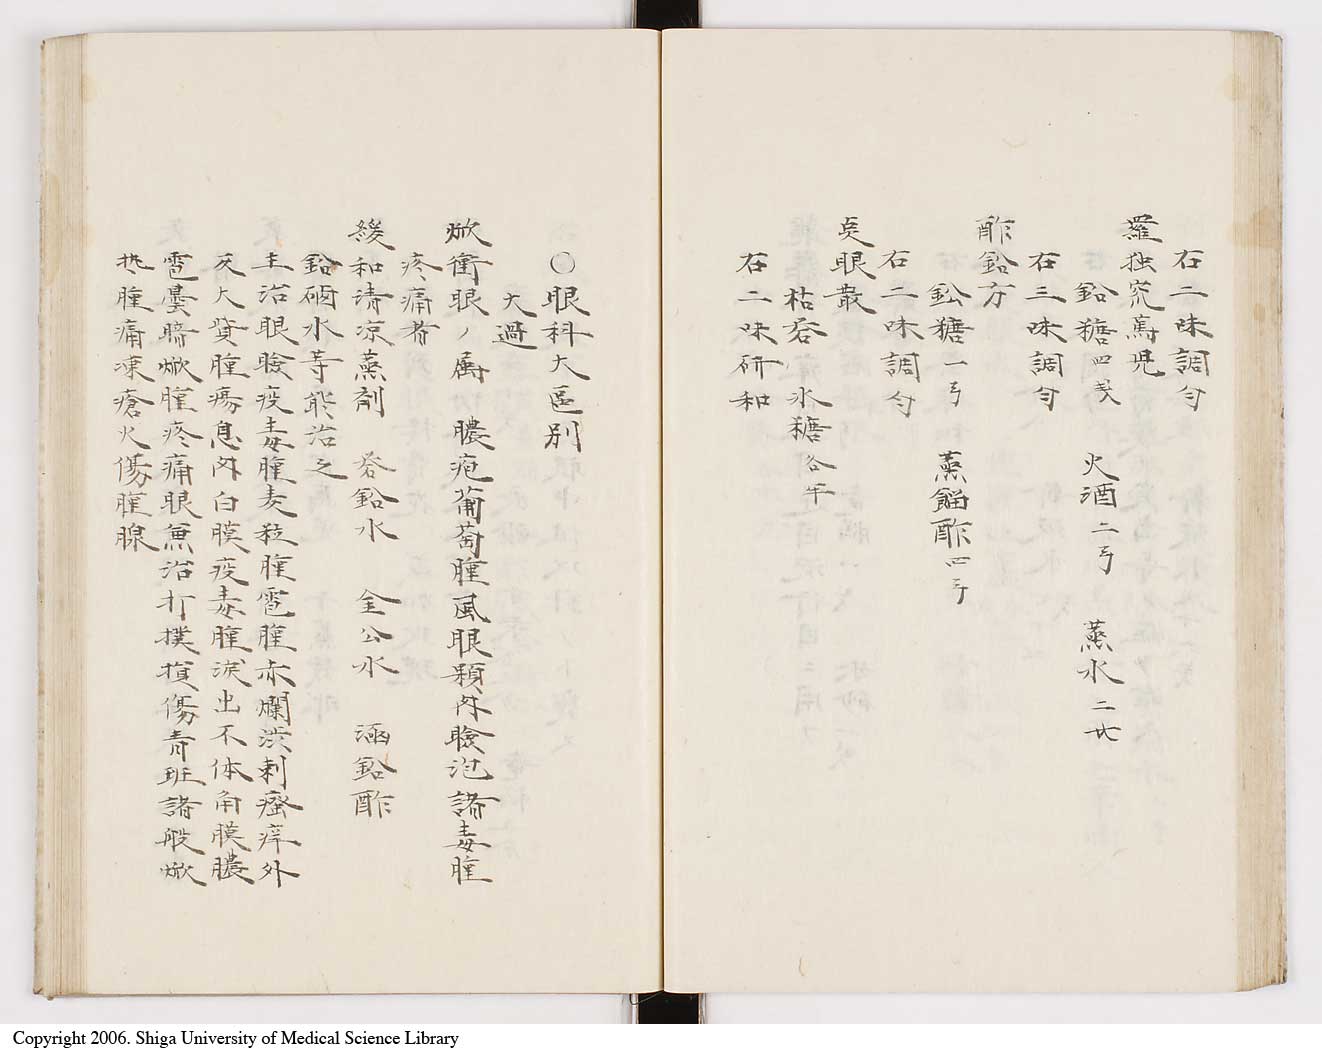 右二味調匀
羅独究篤児
鉛糖四戔 火酒二丂 蒸水二廿
右三味調匀
酢鉛方
鉛糖一丂 蒸餾酢四丂
右二味調匀
点眼散
枯吞 氷糖各半
右二味研和
〇眼科大区別
大過
焮衝眼ノ属 膿疱葡萄腫風眼顆内瞼泡諸毒腫
疼痛者
緩和清凉蒸剤 吞鉛水 金公水 涵鉛酢
鉛硇水等能治之
主治眼瞼疫毒腫麦粒腫雹腫赤爛洪刺瘙痒外
灰大貲腫瘍息肉白膜疫毒腫涙出不体角膜膿
雹曇暗焮腫疼痛眼兼治打撲損傷青班諸般焮
热腫痛凍瘡火傷腫腺
Copyright 2006. Shiga University of Medical Science Library